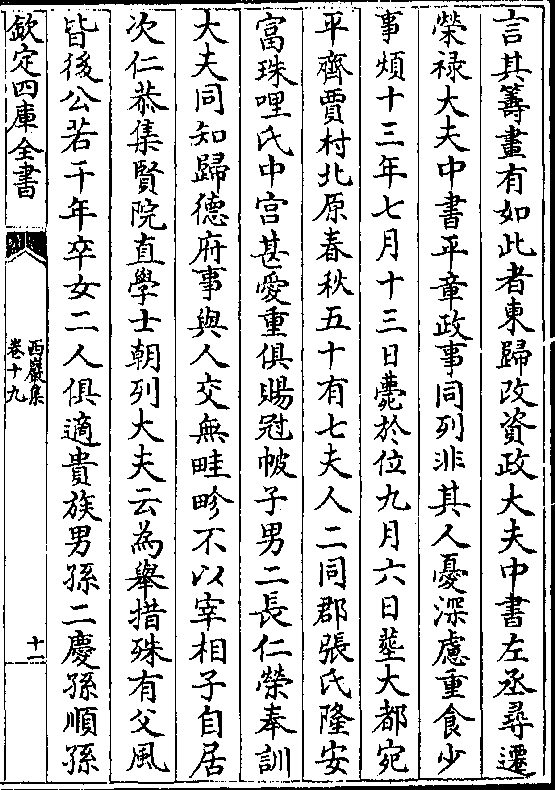 言其籌畫有如此者東歸改資政大夫中書左丞尋遷
榮禄大夫中書平章政事同列非其人憂深慮重食少
事煩十三年七月十三日薨於位九月六日塟大都宛
平齊賈村北原春秋五十有七夫人二同郡張氏隆安
富珠哩氏中宫甚愛重俱賜冠帔子男二長仁榮奉訓
大夫同知歸德府事與人交無畦畛不以宰相子自居
次仁恭集賢院直學士朝列大夫云為舉措殊有父風
皆後公若干年卒女二人俱適貴族男孫二慶孫順孫
欽定四庫全書
西巖集
卷十九
十一